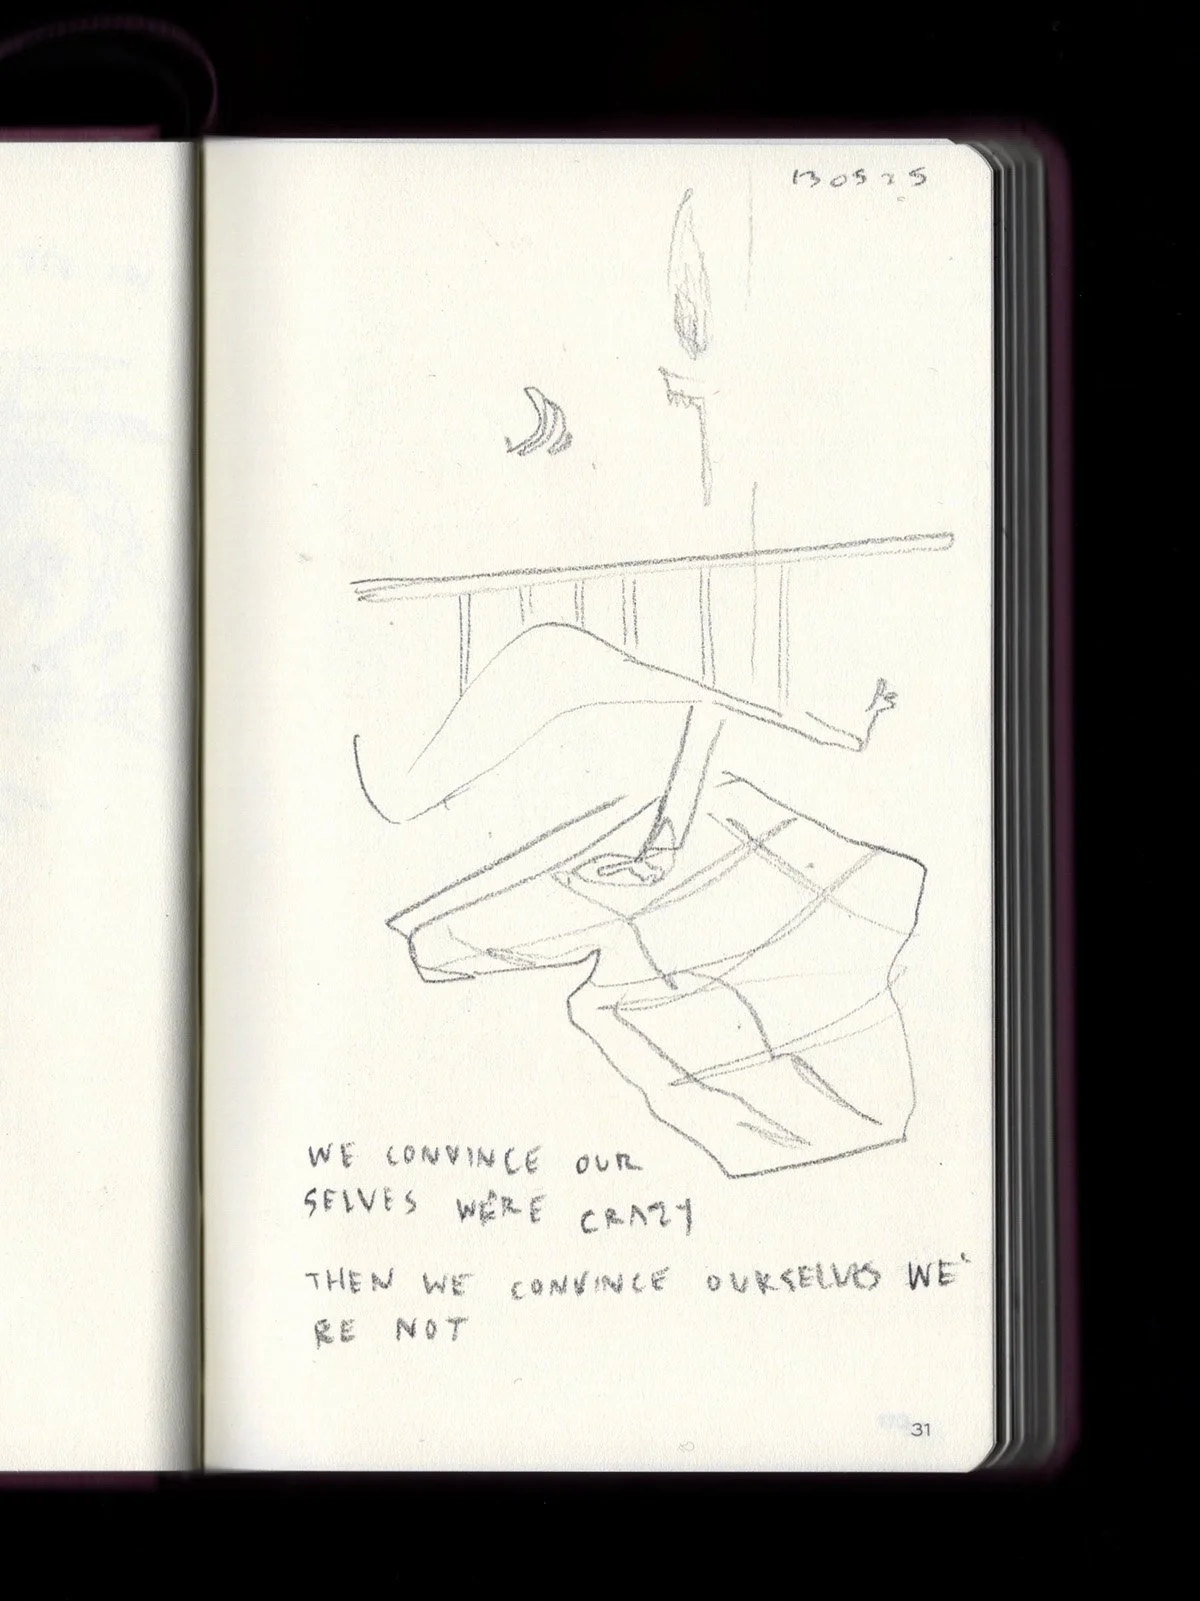 130525
WE CONVINCE OUR
SELVES WE'RE CRAZY
THEN WE CONVINCE OURSELVES WE'
RE NOT
31